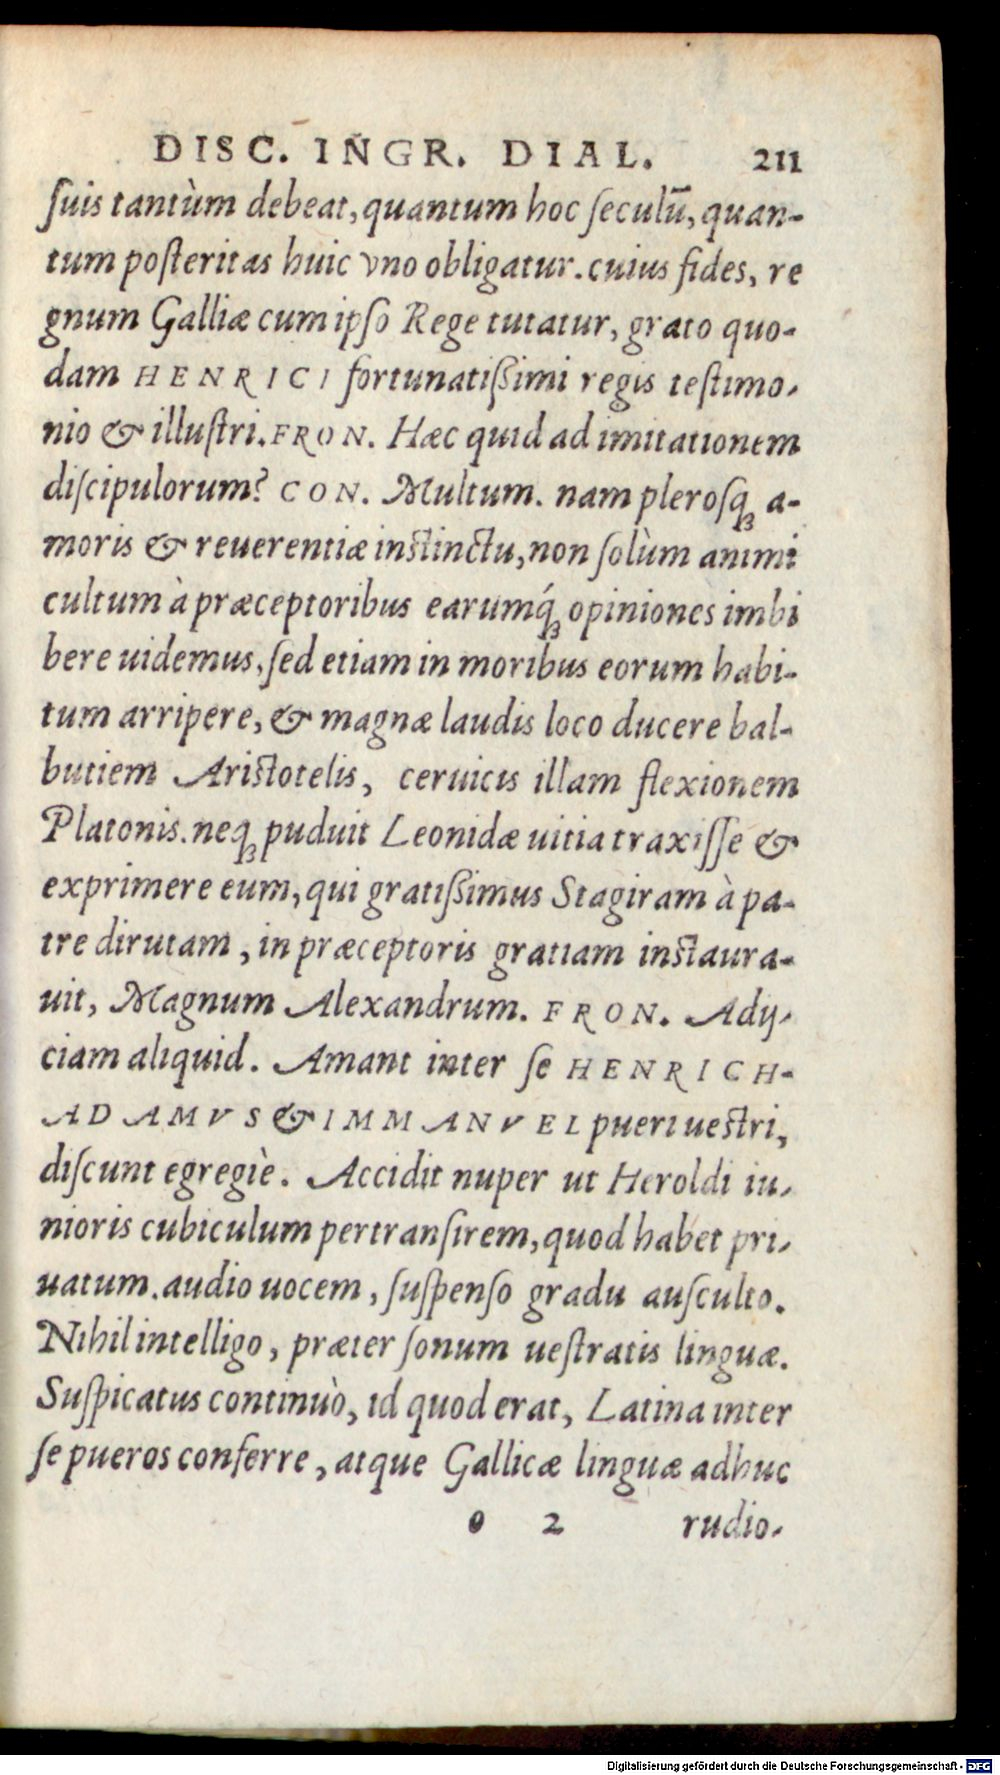 DISC. INGR. DIAL. 211
ſuis tantùm debeat, quantum hoc ſeculū, quan-
tum poſteritas huic vno obligatur. cuius fides, re
gnum Galliæ cum ipſo Rege tutatur, grato quo-
dam HENRICI fortunatißimi regis teſtimo-
nio & illuſtri. FRON. Hæc quid ad imitationem
diſcipulorum? CON. Multum. nam pleroſqꝫ a-
moris & reuerentiæ inſtinctu, non ſolùm animi
cultum à præceptoribus earumq́ꝫ opiniones imbi
bere uidemus, ſed etiam in moribus eorum habi-
tum arripere, & magnæ laudis loco ducere bal-
butiem Ariſtotelis, ceruicis illam flexionem
Platonis. neqꝫ puduit Leonidæ uitia traxiſſe &
exprimere eum, qui gratißimus Stagiram à pa-
tre dirutam, in præceptoris gratiam inſtaura-
uit, Magnum Alexandrum. FRON. Adij-
ciam aliquid. Amant inter ſe HENRICH-
ADAMVS & IMMANVEL pueri ueſtri,
diſcunt egregiè. Accidit nuper ut Heroldi iu-
nioris cubiculum pertranſirem, quod habet pri-
uatum. audio uocem, ſuſpenſo gradu auſculto.
Nihil intelligo, præter ſonum ueſtratis linguæ.
Suſpicatus continuò, id quod erat, Latina inter
ſe pueros conferre, atque Gallicæ linguæ adhuc
o 2 rudio-
Digitalisierung gefördert durch die Deutsche Forschungsgemeinschaft - DFG